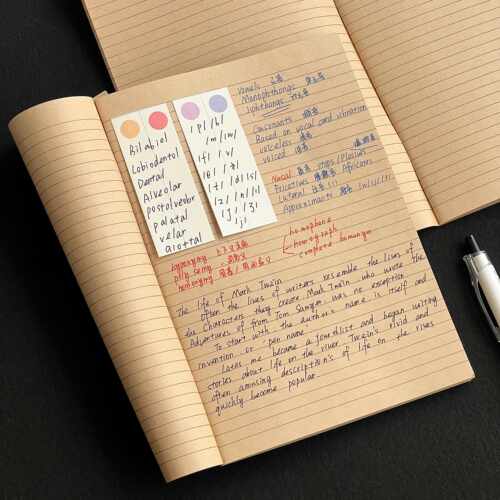 Bilabial
Lobiodentol
Dental
Alveolar
postolveolor
palatal
velar
glottal
/p/ /b/
/m/ /w/
/f/ /v/
/θ/ /ð/
/t/ /d/ /s/
/z/ /n/ /l/
/ʃ/ /ʒ/
/j/
Vowels
Monophthongs
Consonants
Based on vocal cord vibration
voiceless
voiced
Nasal stops / Plosives
Fricatives Africates
Lateral
Approximants /w/ /r/ /j/
hyponymy
homonymy
homophone
homograph
complete homonym
The life of Mark Twain
Often the lives of writers resemble the lives of
the Characters they create. Mark Twain who wrote the
Adventures of from Tom Sawyer was no exception
To start with the author's name is itself and
invention or "pen name"
Later me became a journalist and began writing
stories about life on the river Twain's vivid and
often amusing descriptions of life on the river
quickly become popular